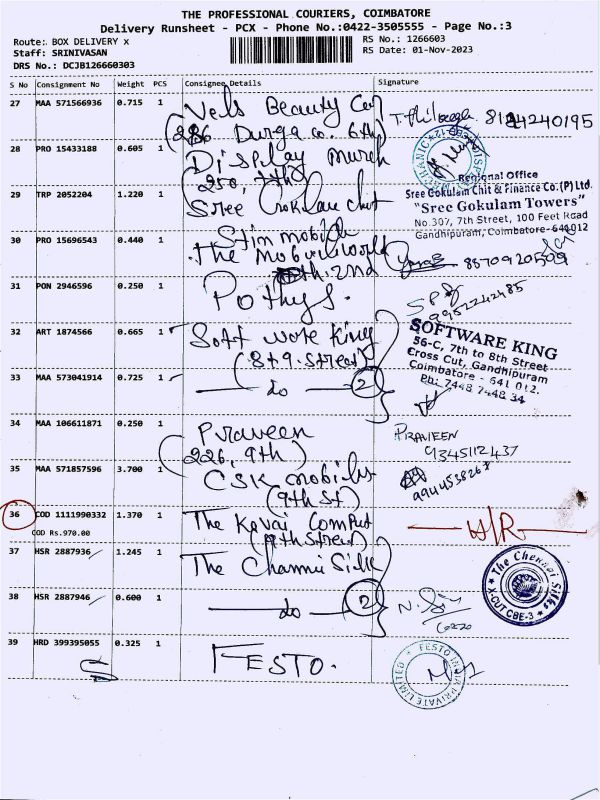 THE PROFESSIONAL COURIERS, COIMBATORE
Delivery Runsheet - PCX - Phone No.:0422-3505555 - Page No.:3
Route: BOX DELIVERY x
Staff: SRINIVASAN
DRS No.: DCJB126660303
RS No.: 1266603
RS Date: 01-Nov-2023
S No Consignment No Weight PCS Consignee Details Signature
27 MAA 571566936 0.715 1 Vels Beauty
(286 Durga co. 6th)
28 PRO 15433188 0.605 1 Display
(250, 7th)
29 TRP 2052204 1.220 1 Sree Gokulam chit
Regional Office
Sree Gokulam Chit & Finance Co.(P) Ltd.
"Sree Gokulam Towers"
No.307, 7th Street, 100 Feet Road
Gandhipuram, Coimbatore-641012
30 PRO 15696543 0.440 1 Stim mobile
The Mobile world
2nd
31 PON 2946596 0.250 1 Pothys.
9952242485
32 ART 1874566 0.665 1 Soft ware King
(8th 9. street)
SOFTWARE KING
56-C, 7th to 8th Street
Cross Cut, Gandhipuram
Coimbatore - 641 012.
Ph: 7448 7448 34
33 MAA 573041914 0.725 1 do 2
34 MAA 106611871 0.250 1 Praveen
(226, 9th)
PRAVEEN
9345112437
35 MAA 571857596 3.700 1 CSK mobiles
(9th St)
36 COD 1111990332 1.370 1 The Kovai Comput
COD Rs.970.00
(9th Street)
37 HSR 2887936 1.245 1 The Chennai Silk
The Chennai Silks
X-CUT CBE-3
38 HSR 2887946 0.600 1 do 2
39 HRD 399395055 0.325 1 FESTO.
FESTO INDIA PRIVATE LIMITED